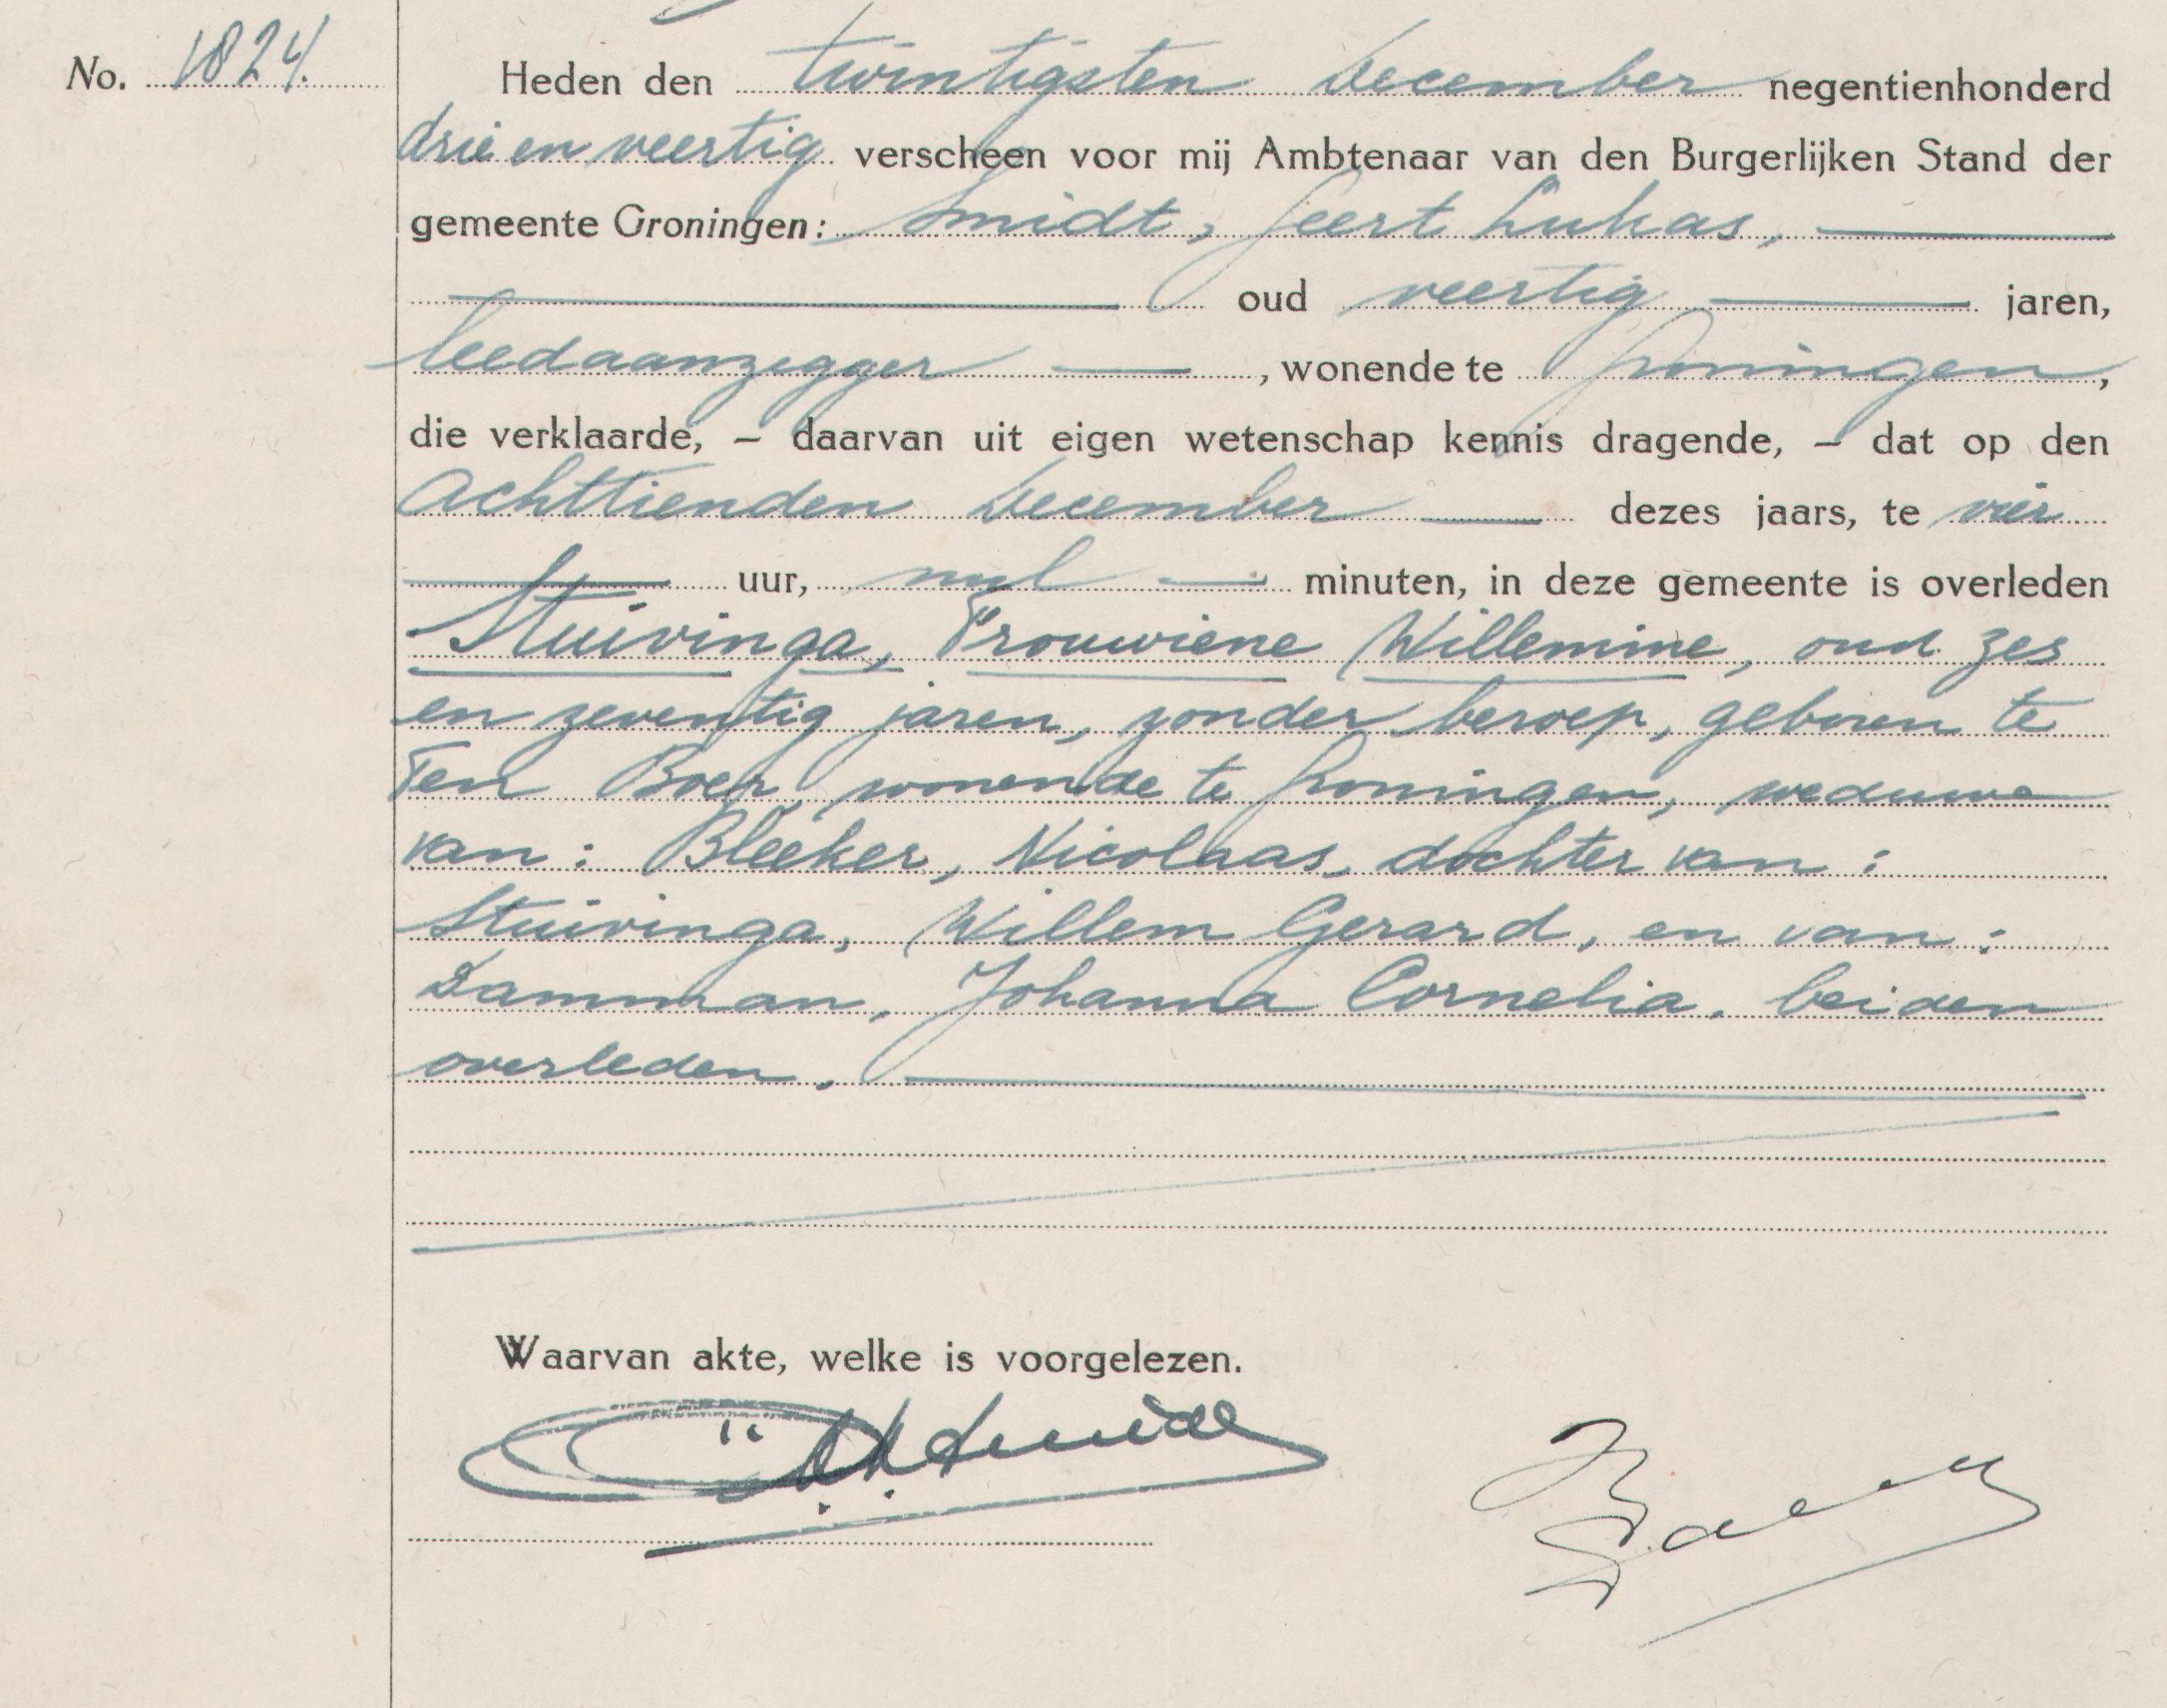 No. 1824.
Heden den twintigsten December negentienhonderd
drie en veertig verscheen voor mij Ambtenaar van den Burgerlijken Stand der
gemeente Groningen: Smidt, Geert Lukas,
oud veertig jaren,
leedaanzegger, wonende te Groningen,
die verklaarde, – daarvan uit eigen wetenschap kennis dragende, – dat op den
achttienden December dezes jaars, te vier
uur, nul minuten, in deze gemeente is overleden
Stuivinga, Frouwiene Willemine, oud zes
en zeventig jaren, zonder beroep, geboren te
Ten Boer, wonende te Groningen, weduwe
van: Bleeker, Nicolaas, dochter van:
Stuivinga, Willem Gerard, en van:
Damman, Johanna Cornelia, beiden
overleden.
Waarvan akte, welke is voorgelezen.